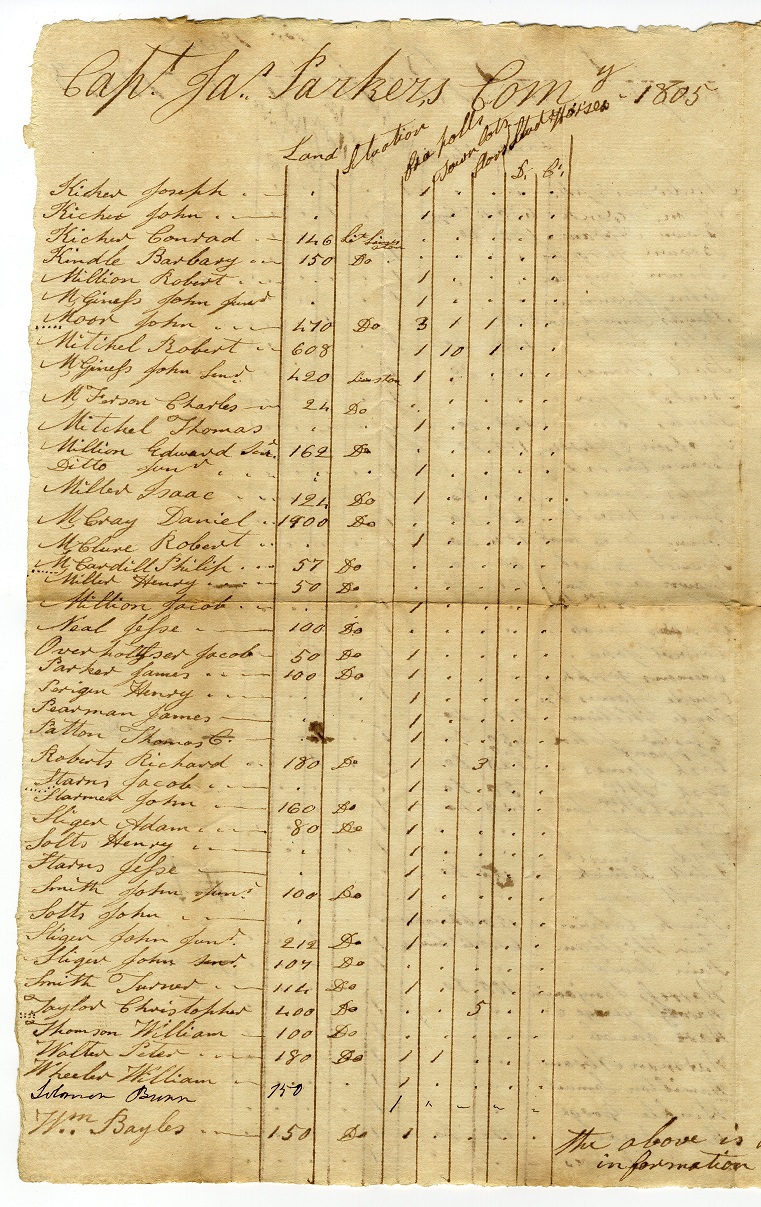 Capt. Jas. Parkers Comy - 1805
Land Situation free polls Town lots Stood Horses D. C.
Kicher Joseph . 1 . . . .
Kicher John . 1 . . . .
Kicher Conrad 146 . . . . .
Kindle Barbary 150 Do . . . . .
Million Robert . 1 . . . .
McGiness John Junr . 1 . . . .
Moor John 470 Do 3 1 1 . .
Mitchel Robert 608 1 10 1 . .
McGiness John Senr. 420 1 . . . .
McFerson Charles 24 Do . . . . .
Mitchel Thomas . 1 . . . .
Million Edward Senr. 162 Do . . . . .
Ditto Junr . 1 . . . .
Miller Isaac 124 Do 1 . . . .
McCray Daniel 1900 Do . . . . .
McClure Robert . 1 . . . .
McCardill Philip 57 Do . . . . .
Miller Henry 50 Do . . . . .
Million Jacob . 1 . . . .
Neal Jesse 100 Do . . . . .
Overholtser Jacob 50 Do 1 . . . .
Parker James 100 Do 1 . . . .
Perigin Henry . 1 . . . .
Pearman James . 1 . . . .
Patton Thomas C. . 1 . . . .
Roberts Richard 180 Do 1 . 3 . .
Starns Jacob . 1 . . . .
Starmer John 160 Do 1 . . . .
Sliger Adam 80 Do 1 . . . .
Solts Henry . 1 . . . .
Starns Jesse . 1 . . . .
Smith John Junr 100 Do 1 . . . .
Solts John . 1 . . . .
Sliger John Junr. 212 Do 1 . . . .
Sliger John Senr. 107 Do . . . . .
Smith Turner 114 Do 1 . . . .
Taylor Christopher 400 Do . . 5 . .
Thomson William 100 Do . . . . .
Walter Peter 180 Do 1 1 . . .
Wheeler William . 1 . . . .
Solomon Bunn 150 1 - - - -
Wm Bayles 150 Do 1 . . . .
the above is
information